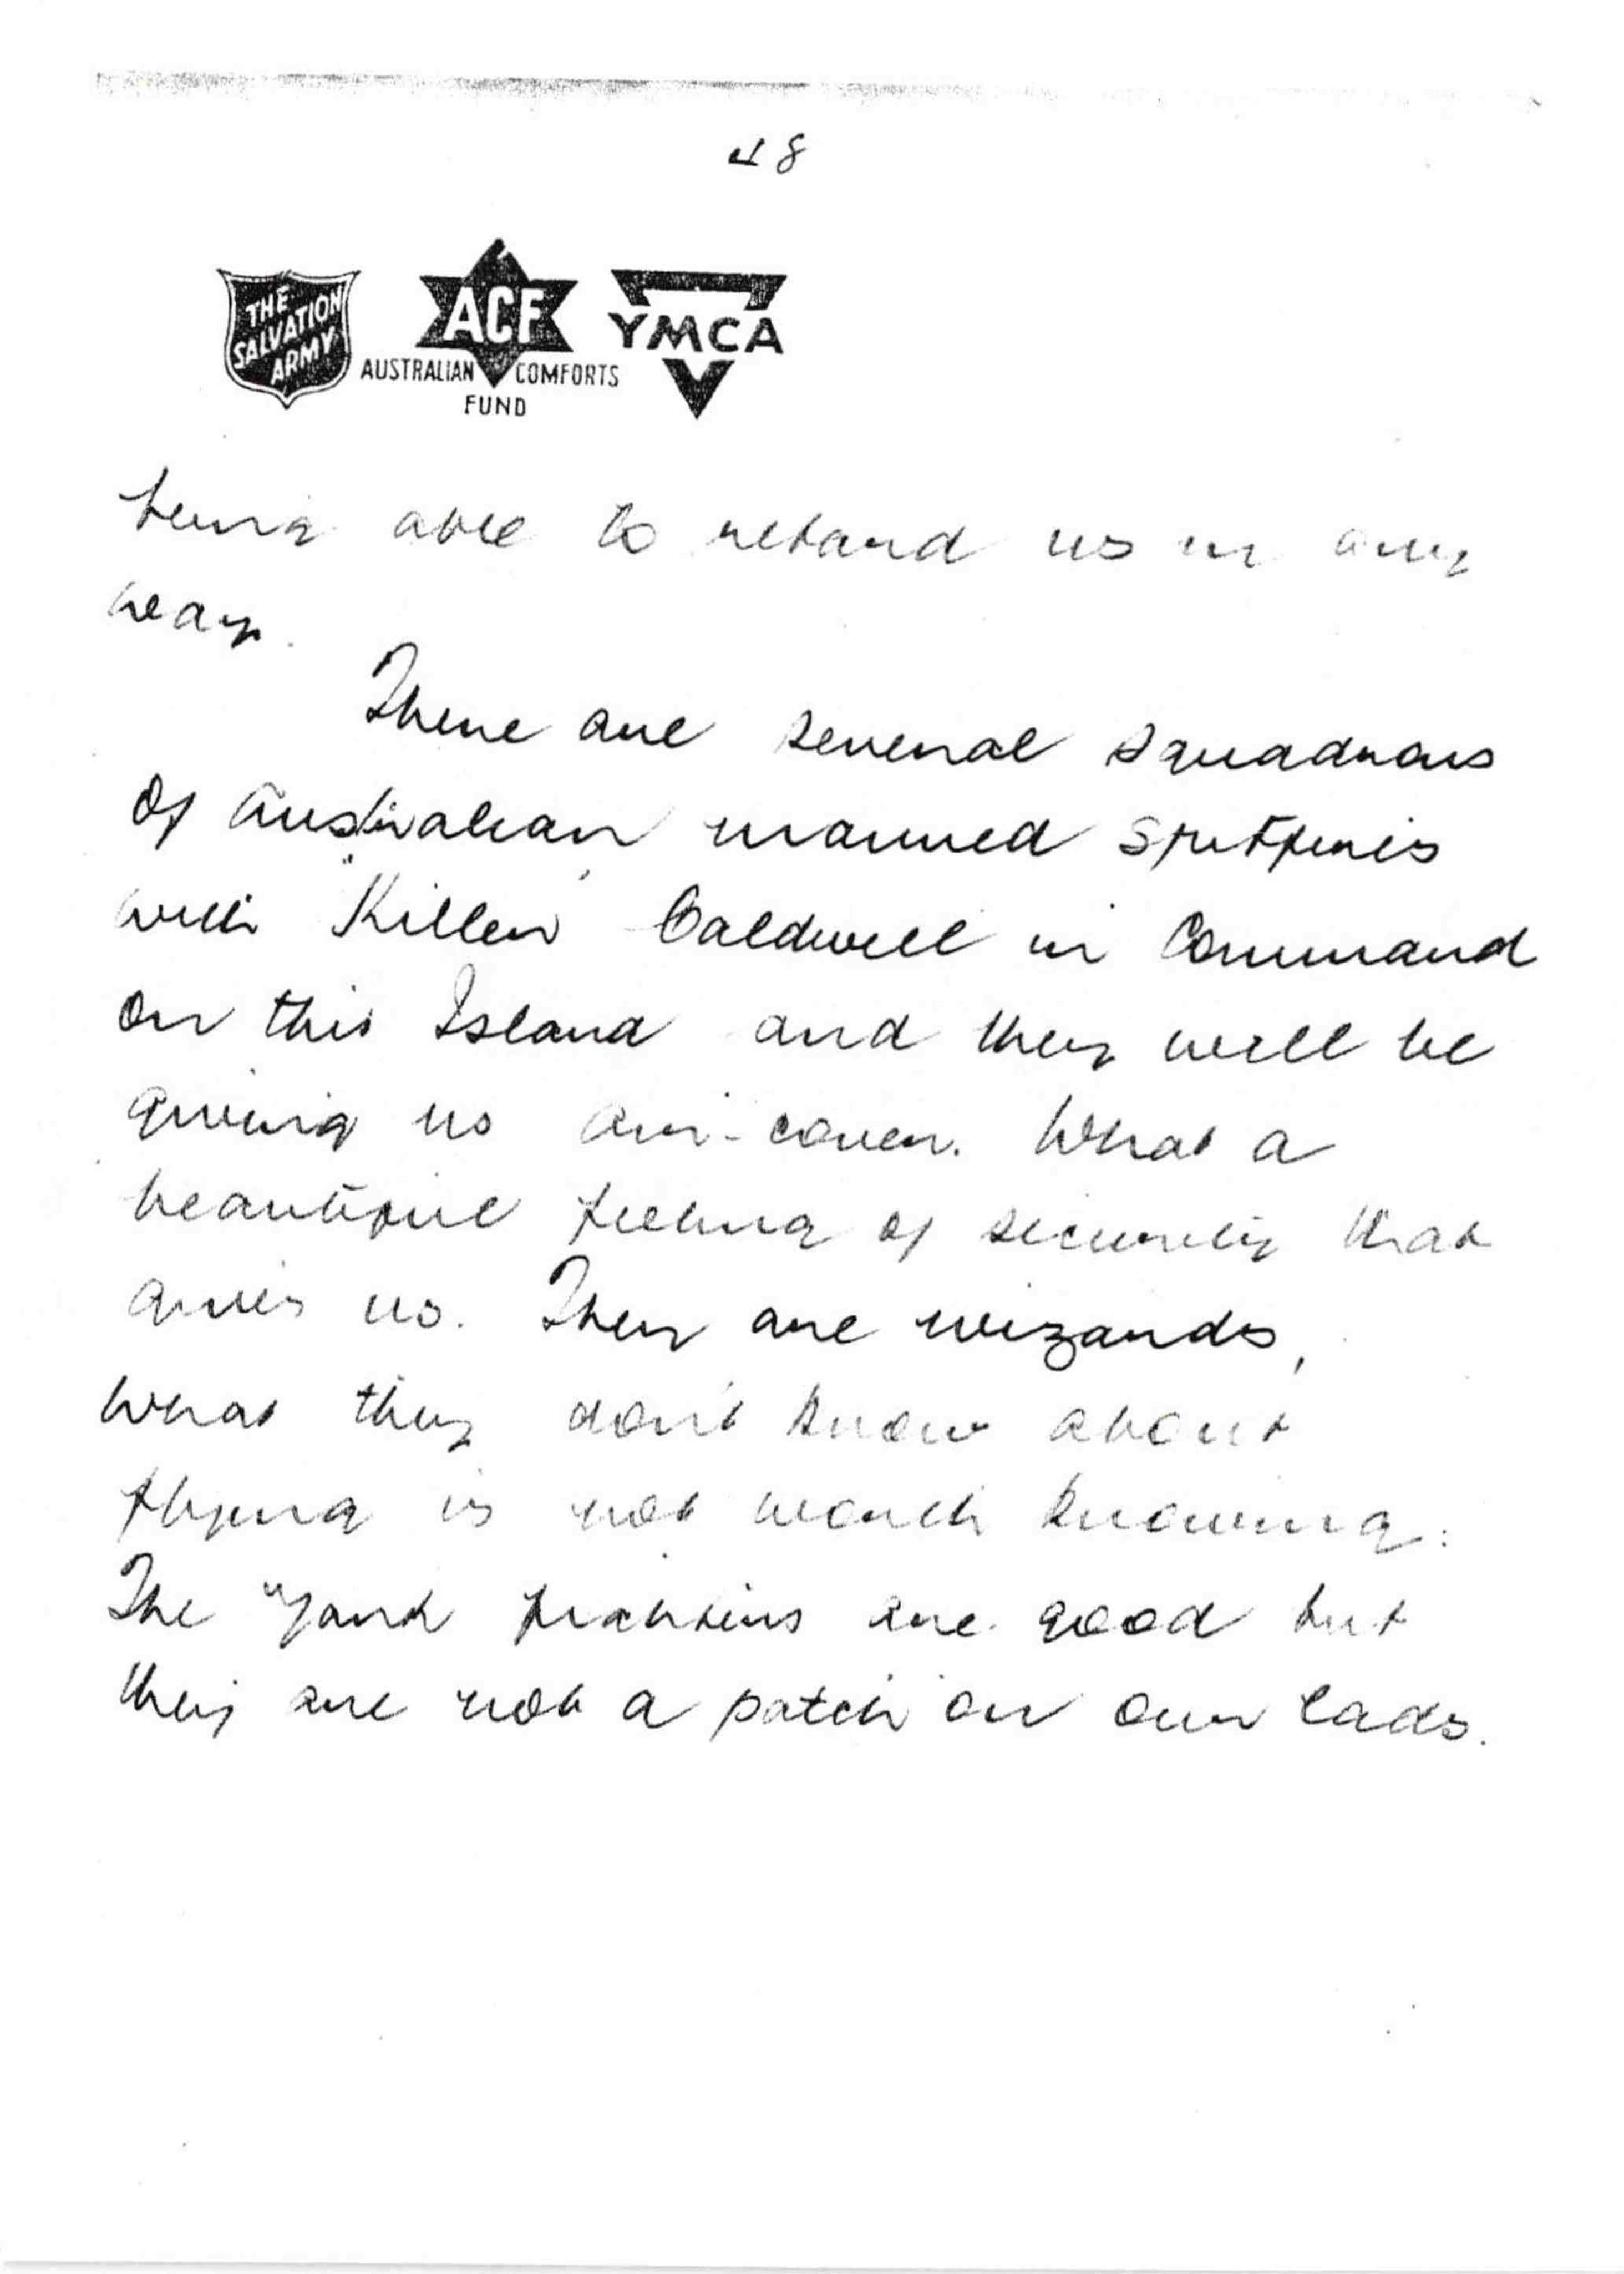 48
THE
SALVATION
ARMY
ACF
AUSTRALIAN COMFORTS
FUND
YMCA
being able to retard us in any
way.
There are several squadrons
of Australian manned Spitfires
with "Killer" Caldwell in Command
on this Island and they will be
giving us air-cover. What a
beautiful feeling of security that
gives us. They are wizards,
what they don't know about
flying is not worth knowing.
The "Yank fighters are good but
they are not a patch on our lads.